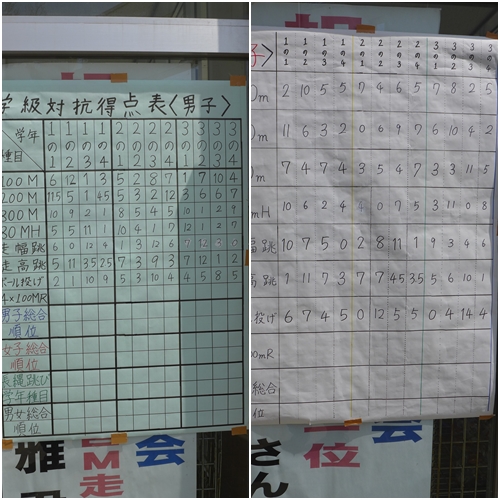 学級対抗得点表〈男子〉
学年 種目 1の1 1の2 1の3 1の4 2の1 2の2 2の3 2の4 3の1 3の2 3の3 3の4
100M 6 12 1 3 5 2 8 7 1 7 10 4
200M 11.5 5 1 4.5 5 3 2 12 3 6 6 7
300M 10 9 2 1 8 5 4 5 10 1 2 9
80MH 5 5 11 1 10 4 1 7 12 1 2 7
走幅跳 6 0 12 4 1 3 12 6 7 12 3 0
走高跳 5 11 3.5 2.5 7 3 9 3 7 12 1 2
ボール投げ 2 1 10 9 5 3 10 4 4 5 8 5
4×100MR
男子総合
順位
女子総合
順位
長縄跳び
学年種目
男女総合
順位
雅
M走
会
子〉 1の1 1の2 1の3 1の4 2の1 2の2 2の3 2の4 3の1 3の2 3の3 3の4
0m 2 10 5 5 7 4 6 5 7 8 2 5
0m 11 6 3 2 0 6 9 7 6 10 4 2
0m 7 4 7 4 3 5 4 7 3 3 11 5
mH 10 6 2 4 4 0 7 5 3 11 0 8
幅跳 10 7 5 0 2 8 11 1 9 3 4 6
高跳 1 11 7 3 7 7 4.5 3.5 5 1 6 1
投げ 6 7 4 5 0 12 5 5 0 4 14 4
00mR
総合
位
さん
位
会